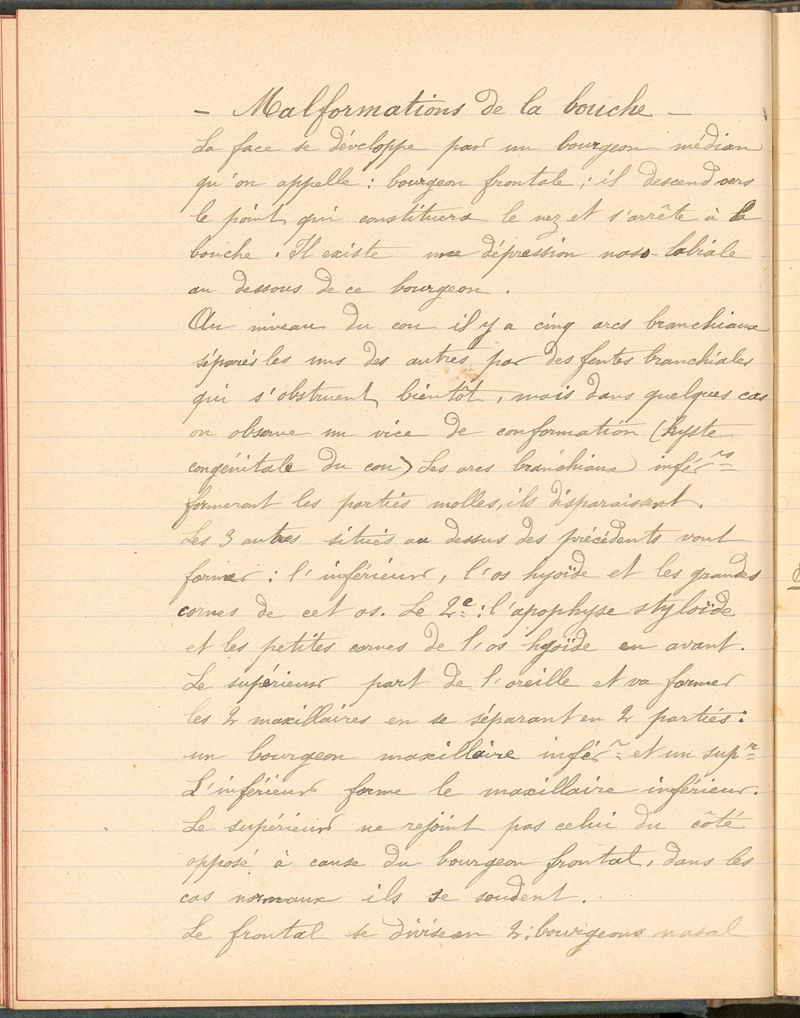 - Malformations de la bouche -
La face se développe par un bourgeon médian
qu'on appelle : bourgeon frontale ; il descend vers
le point qui constituera le nez et s'arrête à la
bouche . Il existe une dépression naso-labiale
au dessous de ce bourgeon .
Au niveau du cou il y a cinq arcs branchiaux
séparés les uns des autres par des fentes branchiales
qui s'obstruent bientôt, mais dans quelques cas
on observe un vice de conformation (kyste
congénitale du cou) Les arcs branchiaux infér.rs
formeront les parties molles, ils disparaissent.
Les 3 autres situés au dessus des précédents vont
former : l'inférieur, l'os hyoïde et les grandes
cornes de cet os. Le 2e : l'apophyse styloïde
et les petites cornes de l'os hyoïde en avant.
Le supérieur part de l'oreille et va former
les 2 maxillaires en se séparant en 2 parties :
un bourgeon maxillaire infér.r et un supr
L'inférieur forme le maxillaire inférieur.
Le supérieur ne rejoint pas celui du côté
opposé à cause du bourgeon frontal, dans les
cas normaux ils se soudent .
Le frontal se divise en 2 : bourgeons nasal